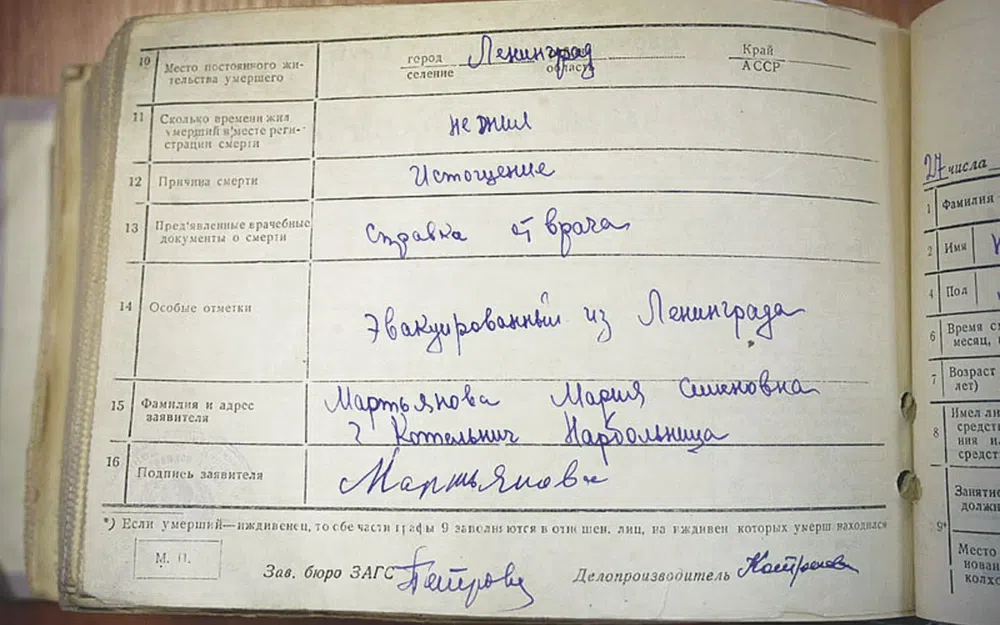 10 Место постоянного жи-
тельства умершего
город Ленинград Край
селение область АССР
11 Сколько времени жил
умерший в месте реги-
страции смерти
не жил
12 Причина смерти
Истощение
13 Пред'явленные врачебные
документы о смерти
Справка от врача
14 Особые отметки
Эвакуированный из Ленинграда
15 Фамилия и адрес
заявителя
Мартьянова Мария Семеновна
г Котельнич Нарбольница
16 Подпись заявителя
Мартьянова
*) Если умерший—иждивенец, то обе части графы 9 заполняются в отношен. лиц, на иждивен которых умерш находился
М. П.
Зав. бюро ЗАГС Петрова
Делопроизводитель
27 числа
1 Фамилия
2 Имя
4 Пол
6 Время с
месяц,
7 Возраст
лет)
8 Имел ли
средств
ния и
средст
9* Занятие
должн
Место
нован
колх